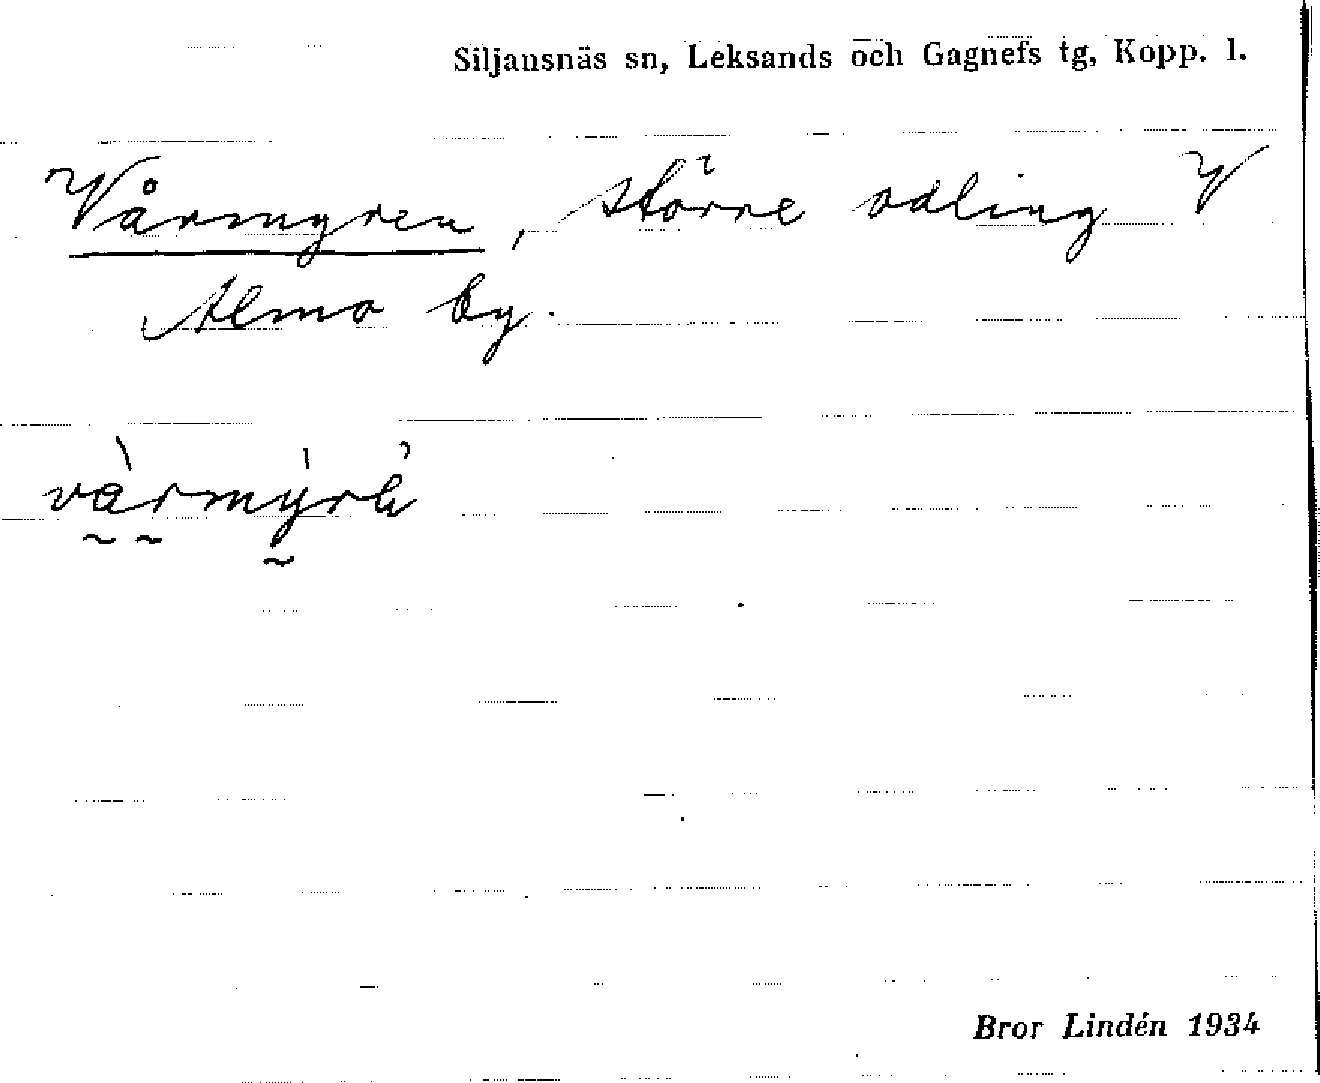 Siljansnäs sn, Leksands och Gagnefs tg, Kopp. l.
Vårmyren, större odling V
Almo by.
Bror Lindén 1934